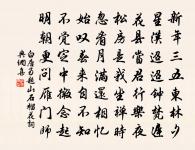 新年三五東林夕
星漢迢迢鐘梵遲
花縣當君行樂夜
松房是我坐禪時
忽看月滿還相憶
始歎春來自不知
不覺定中微念起
明朝更問雁門師